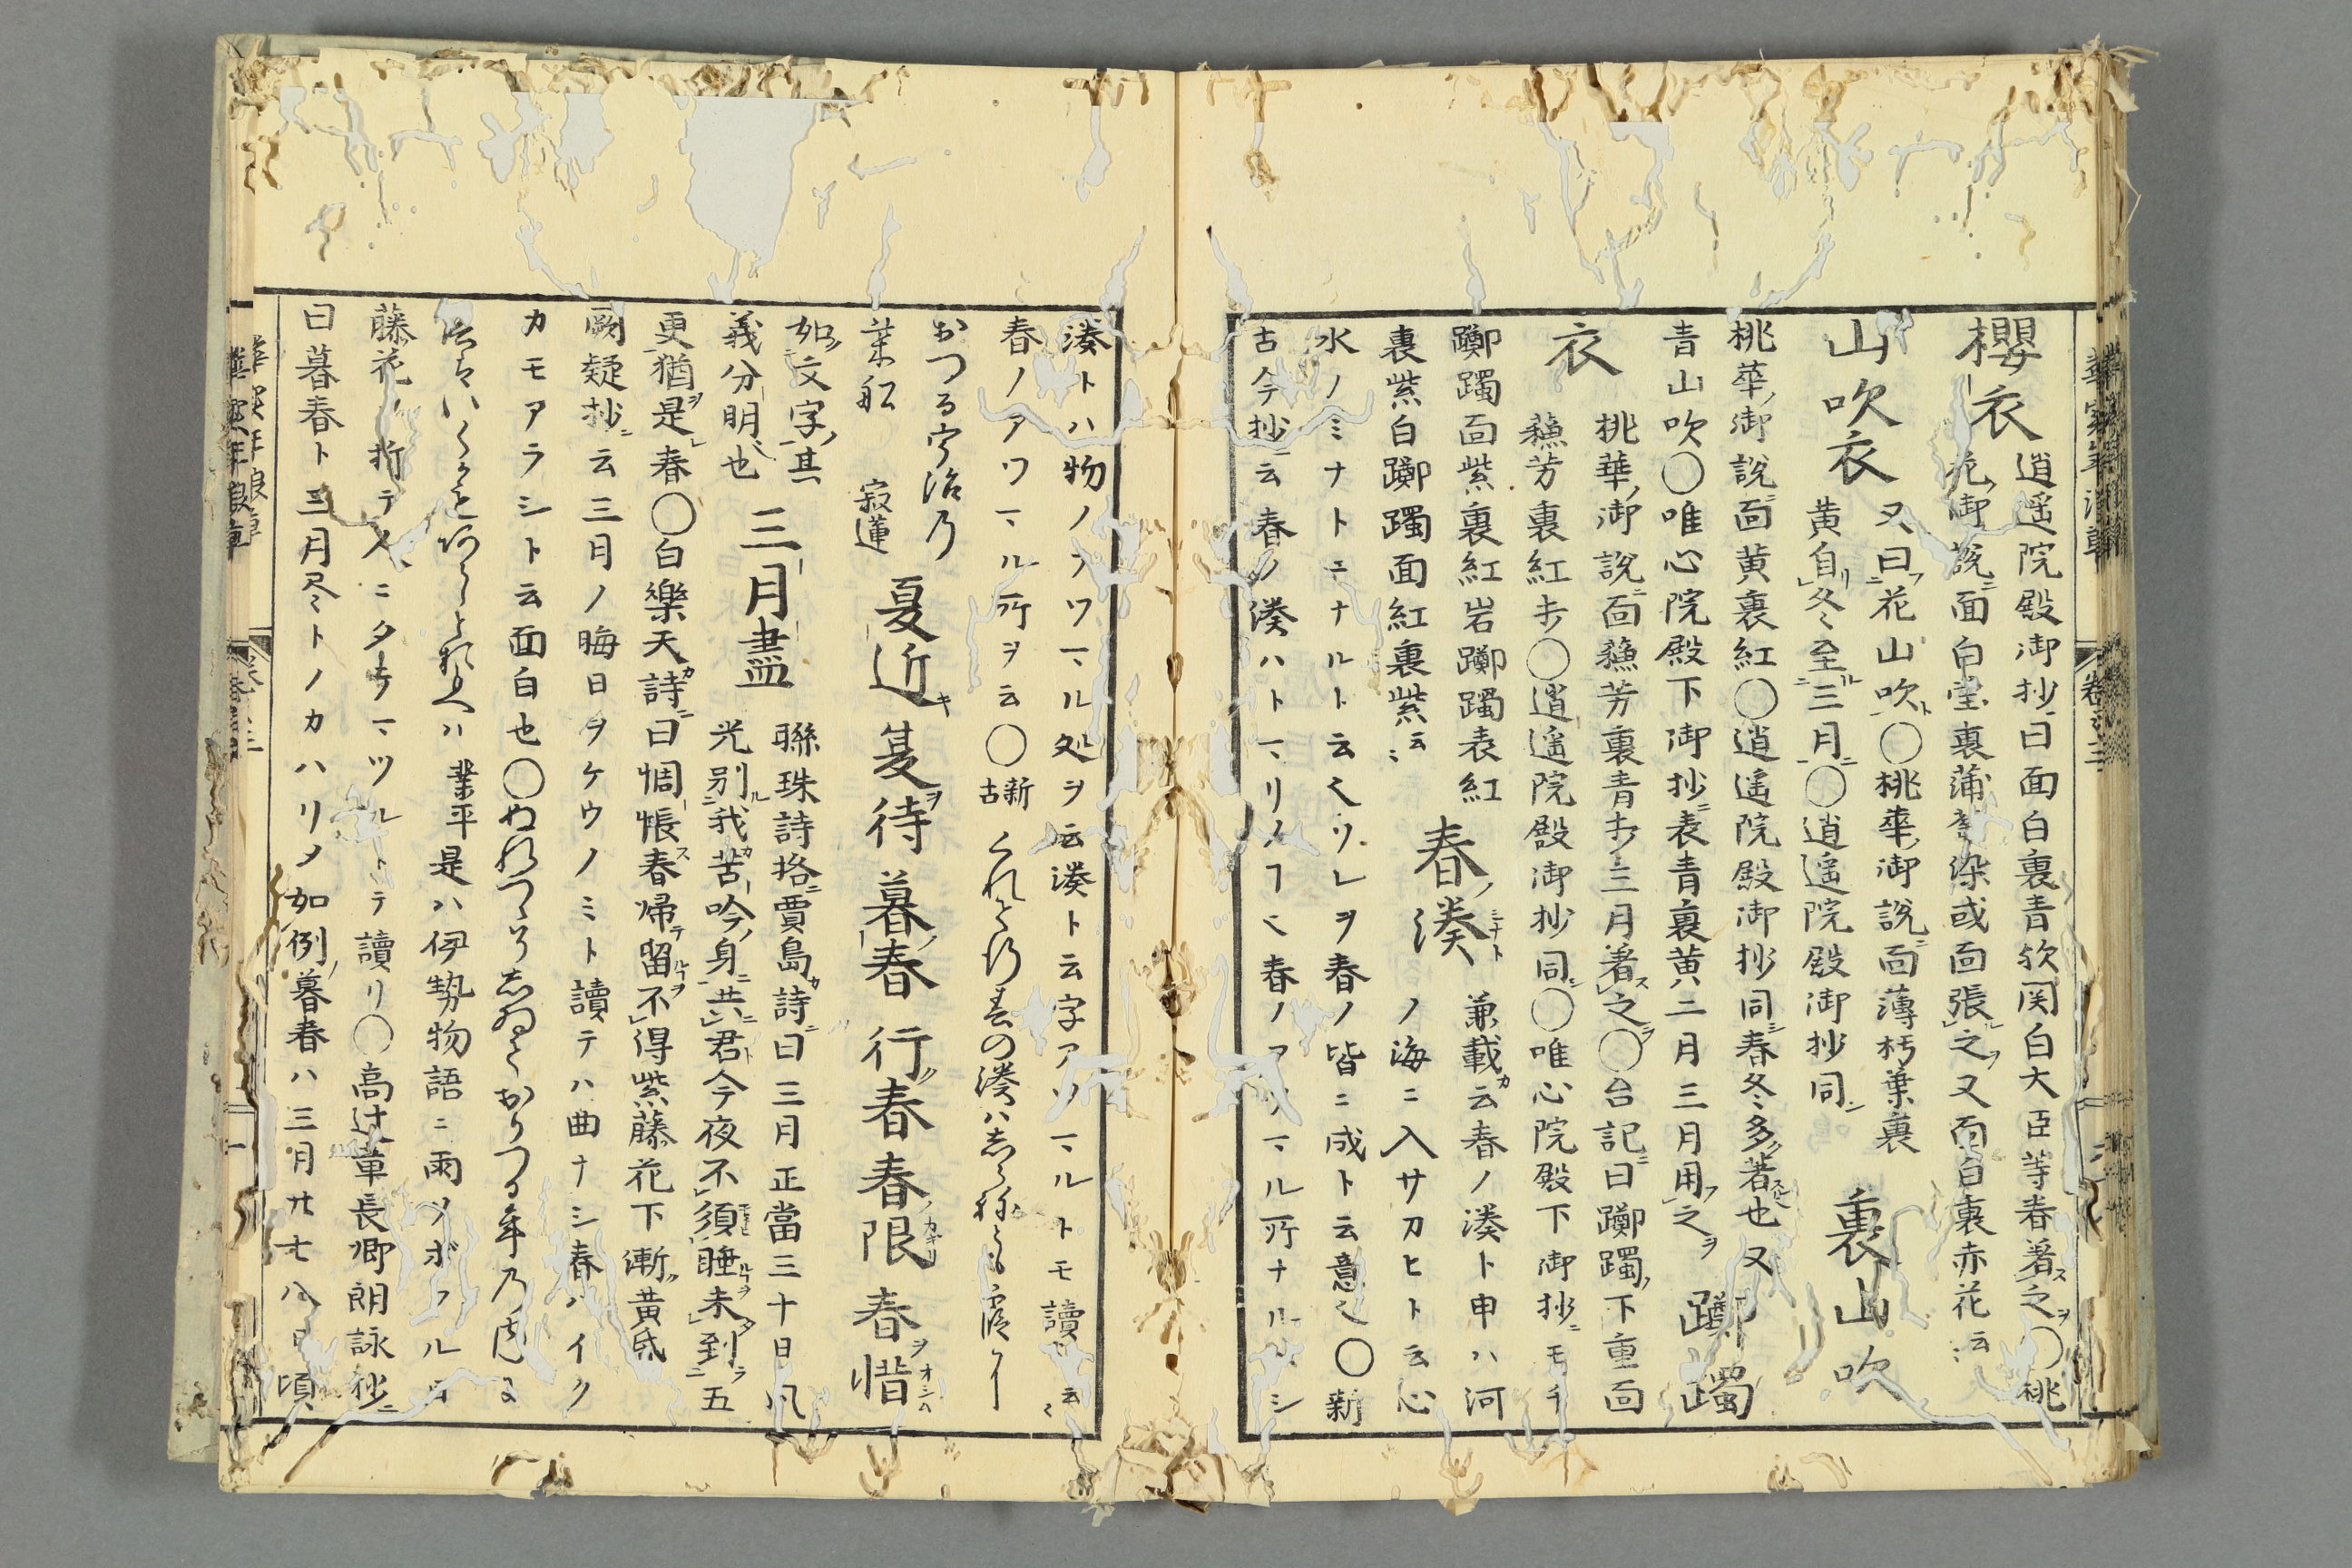 櫻衣 逍遥院殿御抄曰面白裏青欤関白大臣等春著ス之ヲ〇桃
花御説ニ面白裏蒲萄染或面張之又面白裏赤花云〻
山吹衣 又曰花山吹〇桃華御説ニ面薄朽葉裏
黄自リ冬至ル三月ニ〇逍遥院殿御抄同シ 裏山吹
桃華御説ニ面黄裏紅〇逍遥院殿御抄同シ春冬多著也又
青山吹〇唯心院殿下御抄ニ表青裏黄二月三月用之ヲ 躑躅
衣 桃華御説ニ面蘓芳裏青キ三月著ス之ヲ〇台記ニ曰躑躅下重面
蘓芳裏紅キ〇逍遥院殿御抄同シ〇唯心院殿下御抄ニモ
躑躅面紫裏紅岩躑躅表紅
裏紫白躑躅面紅裏紫云〻 春ノ湊ミナト 兼載カ云春ノ湊ト申ハ河
ノ海ニ入サカヒト云心
水ノミナトニナルト云ヘリレヲ春ノ皆ニ成ト云意也〇新
古今抄ニ云春ノ湊ハトマリノ𪜈也春ノアツマル所ナルヘシ
湊トハ物ノアツマル処ヲ云湊ト云字アツマルトモ讀云〻
春ノアツマル所ヲ云〇新古 くれて行春の湊はしらねとも霞に
おつる宇治の
柴舩 寂蓮 夏近キ 夏ヲ待 暮ノ春 行ク春 春ノ限カギリ 春ヲ惜オシム
如文字其
義分明也 三月盡 聯珠詩格ニ賈島カ詩ニ曰三月正當三十日風
光別ル我カ苦吟ノ身ニ共ニ君ト今夜不須睡ルヿヲ未到ラ五
更ニ猶是春〇白樂天カ詩ニ曰惆悵春帰テ留ルヿヲ不得紫藤花下漸ク黄昏
闕疑抄ニ云三月ノ晦日ヲケウノミト讀テハ曲ナシ春ハイク
カモアラシト云面白也〇ぬれつゝそしゐておりつる年の内に
春はいくかもあらしとおもへは 業平是ハ伊勢物語ニ雨ソボフルニ
藤花ヲ折テ人ニタテマツルトテ讀リ〇高辻章長卿朗詠抄ニ
曰暮春ト三月尽トノカハリメ如例ノ暮春ハ三月廿七八日頃